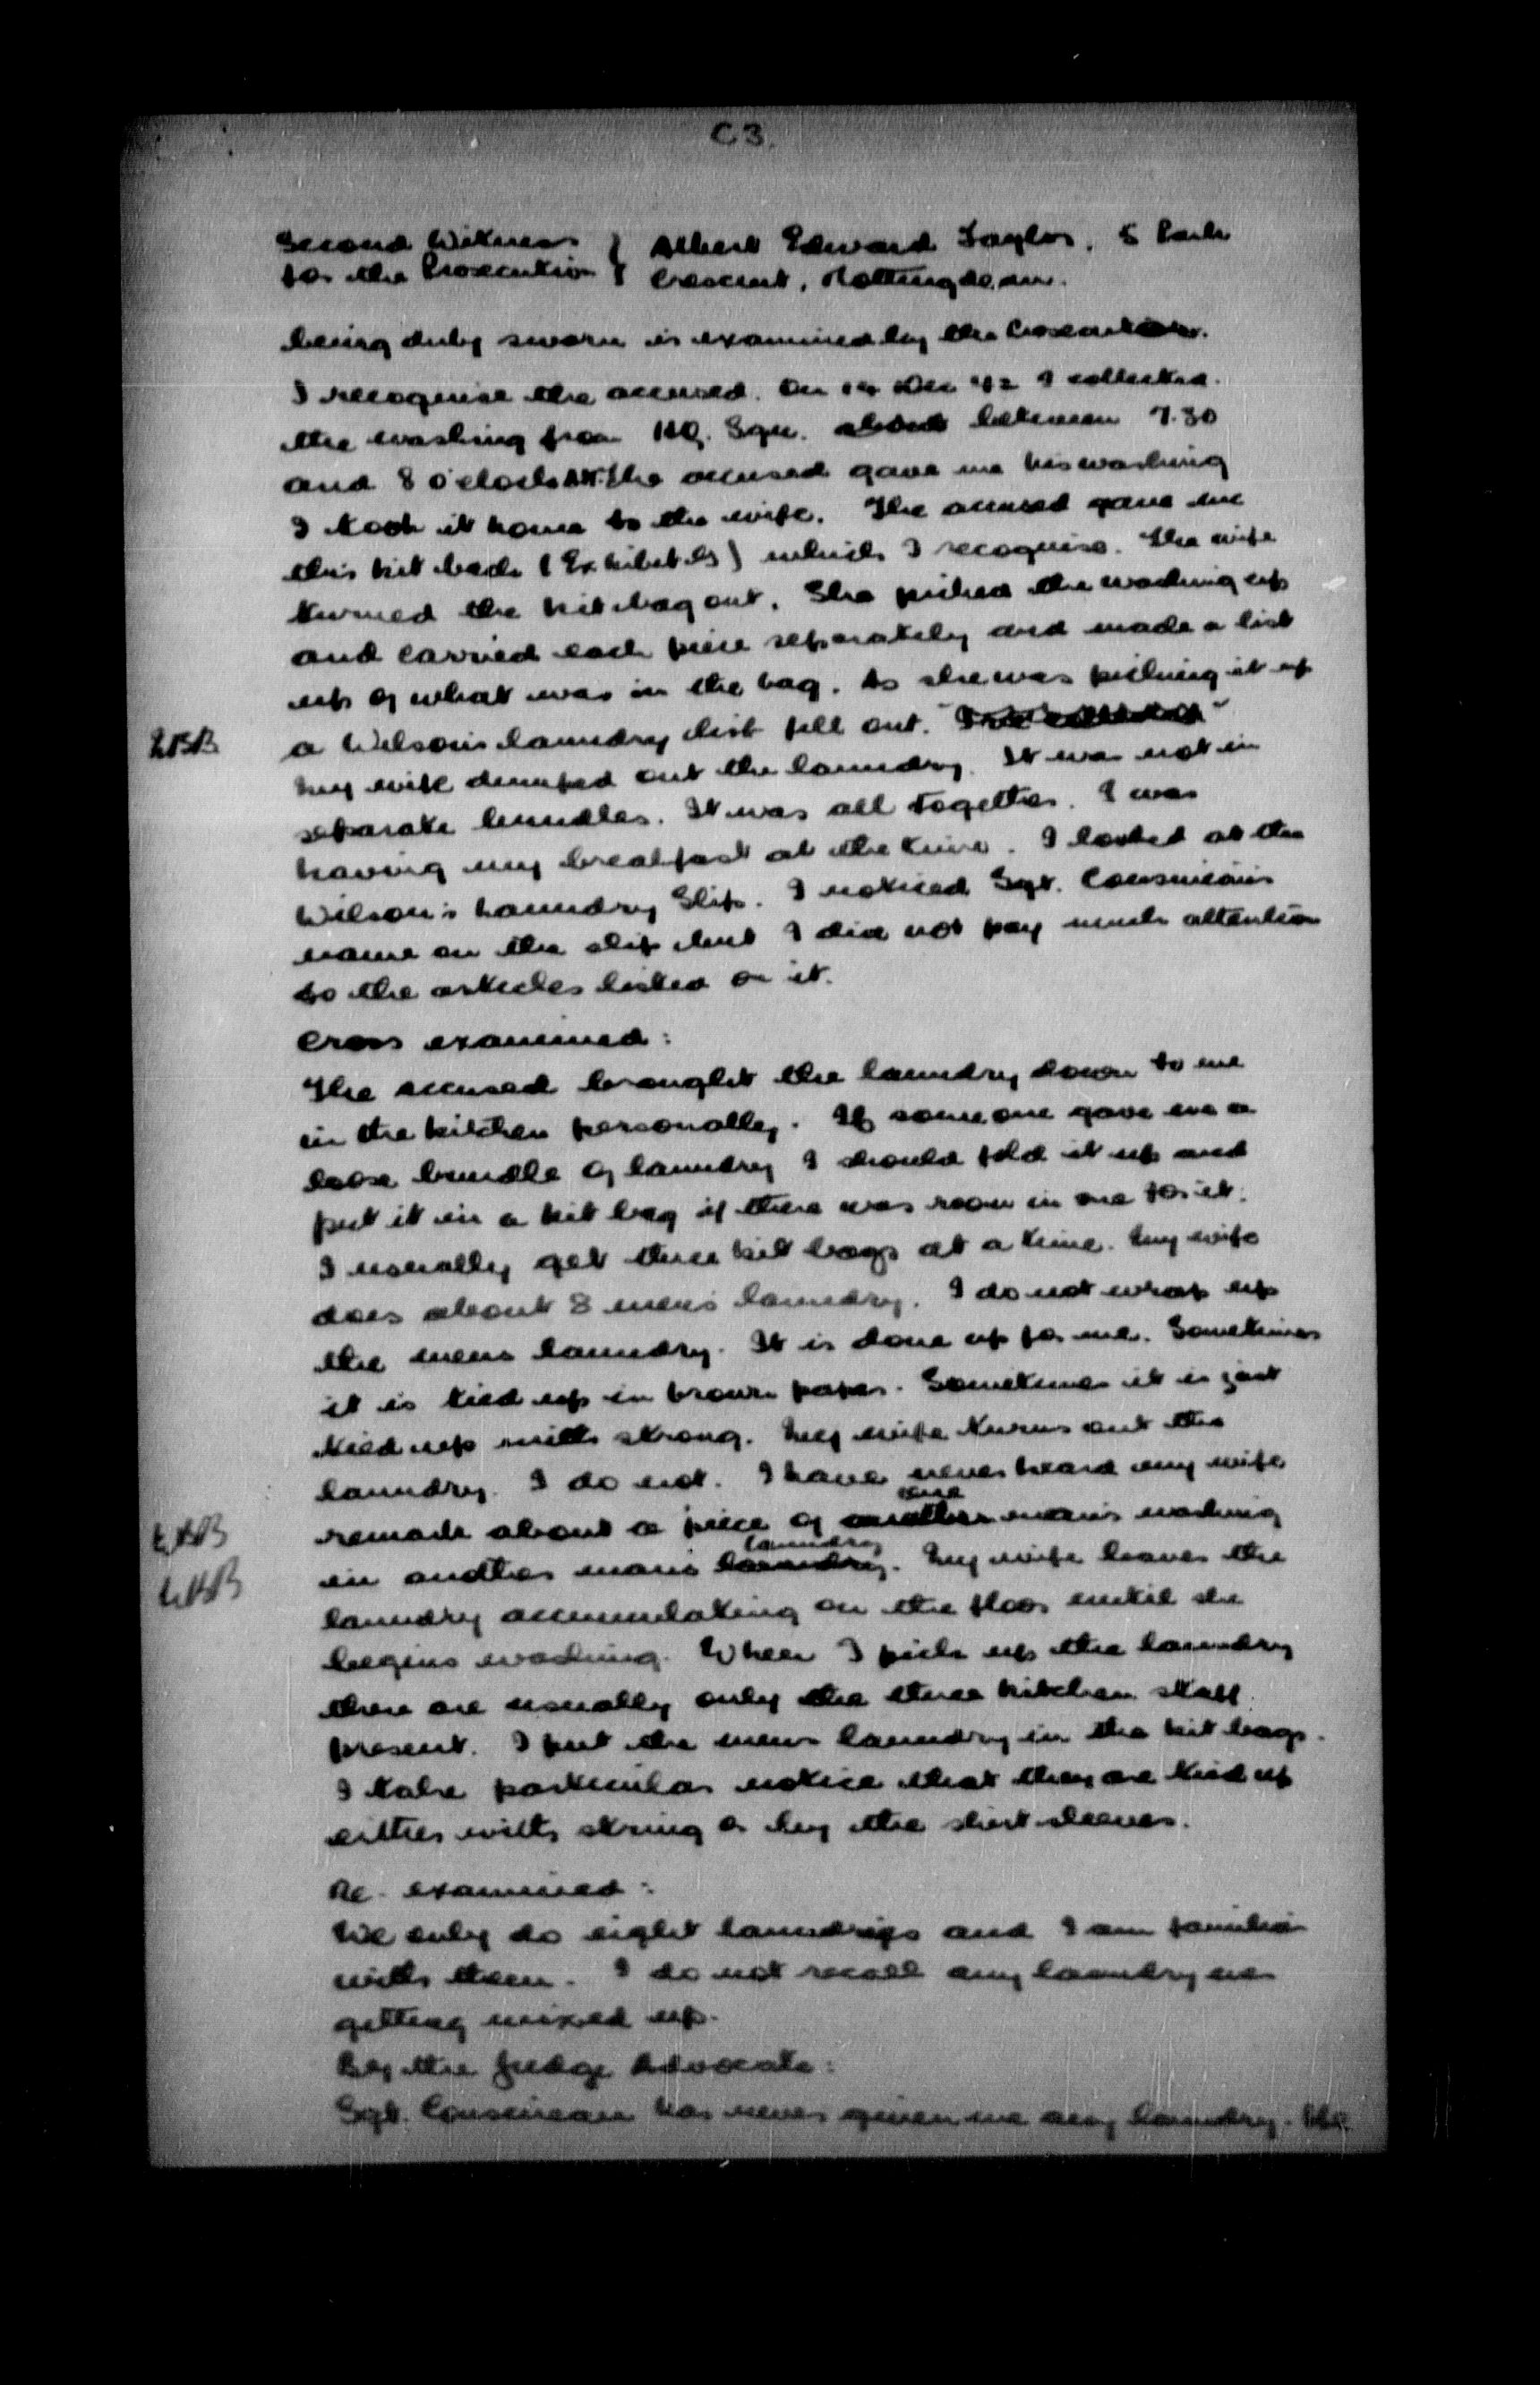 C3.
Second Witness } Albert Edward Taylor, 5 Park
for the Prosecution } Crescent, Rottingdean.
being duly sworn is examined by the Prosecutor.
I recognise the accused. On 14 Dec 42 I collected
the washing from HQ. Sqn. about between 7.30
and 8 o'clock AM. The accused gave me his washing
I took it home to the wife. The accused gave me
this kit back (Exhibit B) which I recognise. The wife
turned the kit bag out. She picked the washing up
and carried each piece separately and made a list
up of what was in the bag. As she was picking it up
EBB
a Wilson's laundry list fell out.
My wife dumped out the laundry. It was not in
separate bundles. It was all together. I was
having my breakfast at the time. I looked at the
Wilson's Laundry Slip. I noticed Sgt. Cousineau's
name on the slip but I did not pay much attention
to the articles listed on it.
Cross examined:
The accused brought the laundry down to me
in the kitchen personally. If someone gave me a
loose bundle of laundry I should fold it up and
put it in a kit bag if there was room in one for it.
I usually get three kit bags at a time. My wife
does about 8 men's laundry. I do not wrap up
the mens laundry. It is done up for me. Sometimes
it is tied up in brown paper. Sometimes it is just
tied up with strong. My wife turns out the
laundry. I do not. I have never heard my wife
EBB
one
remark about a piece of another man's washing
EBB
laundry
in another mans laundry. My wife leaves the
laundry accumulating on the floor until she
begins washing. When I pick up the laundry
there are usually only the three kitchen staff
present. I put the mens laundry in the kit bags.
I take particular notice that they are tied up
either with string or by the shirt sleeves.
Re-examined:
We only do eight laundrys and I am familiar
with them. I do not recall any laundry ever
getting mixed up.
By the Judge Advocate:
Sgt. Cousineau has never given me any laundry. He